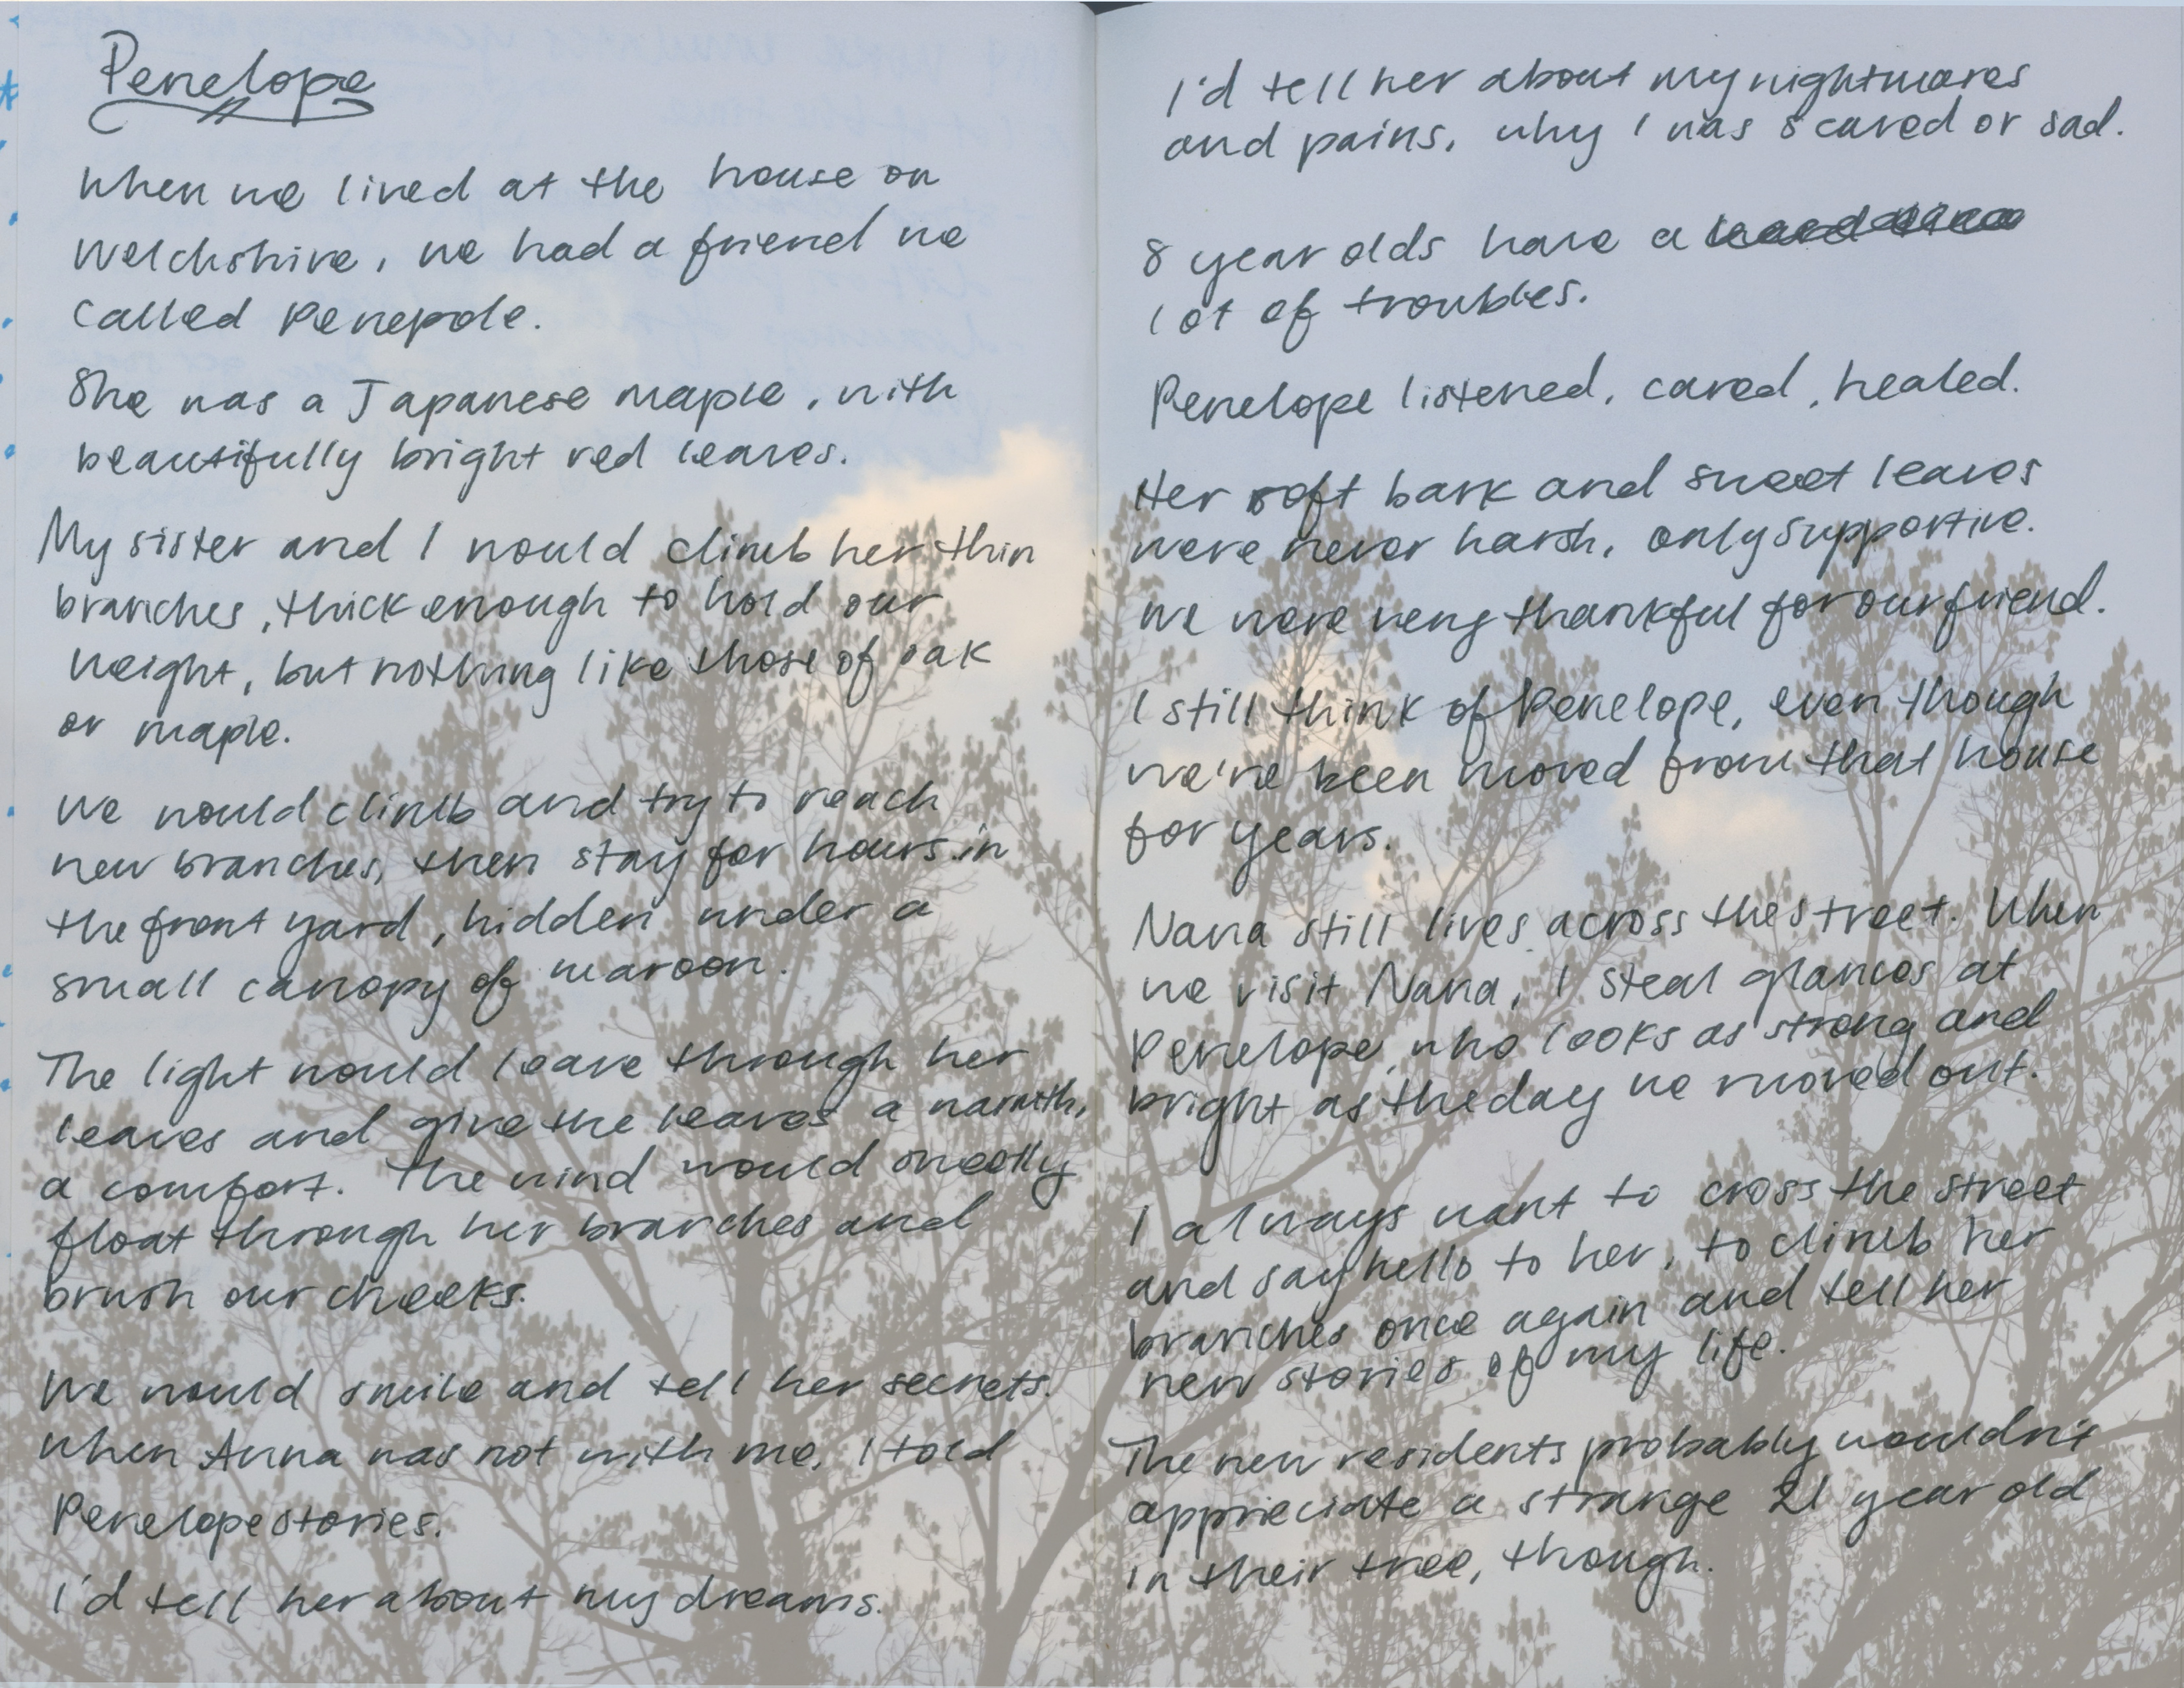 Penelope
When we lived at the house on
Welchshire, we had a friend we
called Penepole.
She was a Japanese maple, with
beautifully bright red leaves.
My sister and I would climb her thin
branches, thick enough to hold our
weight, but nothing like those of oak
or maple.
We would climb and try to reach
new branches, then stay for hours in
the front yard, hidden under a
small canopy of maroon.
The light would leave through her
leaves and give the leaves a warmth,
a comfort. The wind would sweetly
float through her branches and
brush our cheeks.
We would smile and tell her secrets.
When Anna was not with me, I told
Penelope stories.
I'd tell her about my dreams.
I'd tell her about my nightmares
and pains, why I was scared or sad.
8 year olds have a
lot of troubles.
Penelope listened, cared, healed.
Her soft bark and sweet leaves
were never harsh, only supportive.
We were very thankful for our friend.
I still think of Penelope, even though
we've been moved from that house
for years.
Nana still lives across the street. When
we visit Nana, I steal glances at
Penelope, who looks as strong and
bright as the day we moved out.
I always want to cross the street
and say hello to her, to climb her
branches once again and tell her
new stories of my life.
The new residents probably wouldn't
appreciate a strange 21 year old
in their tree, though.